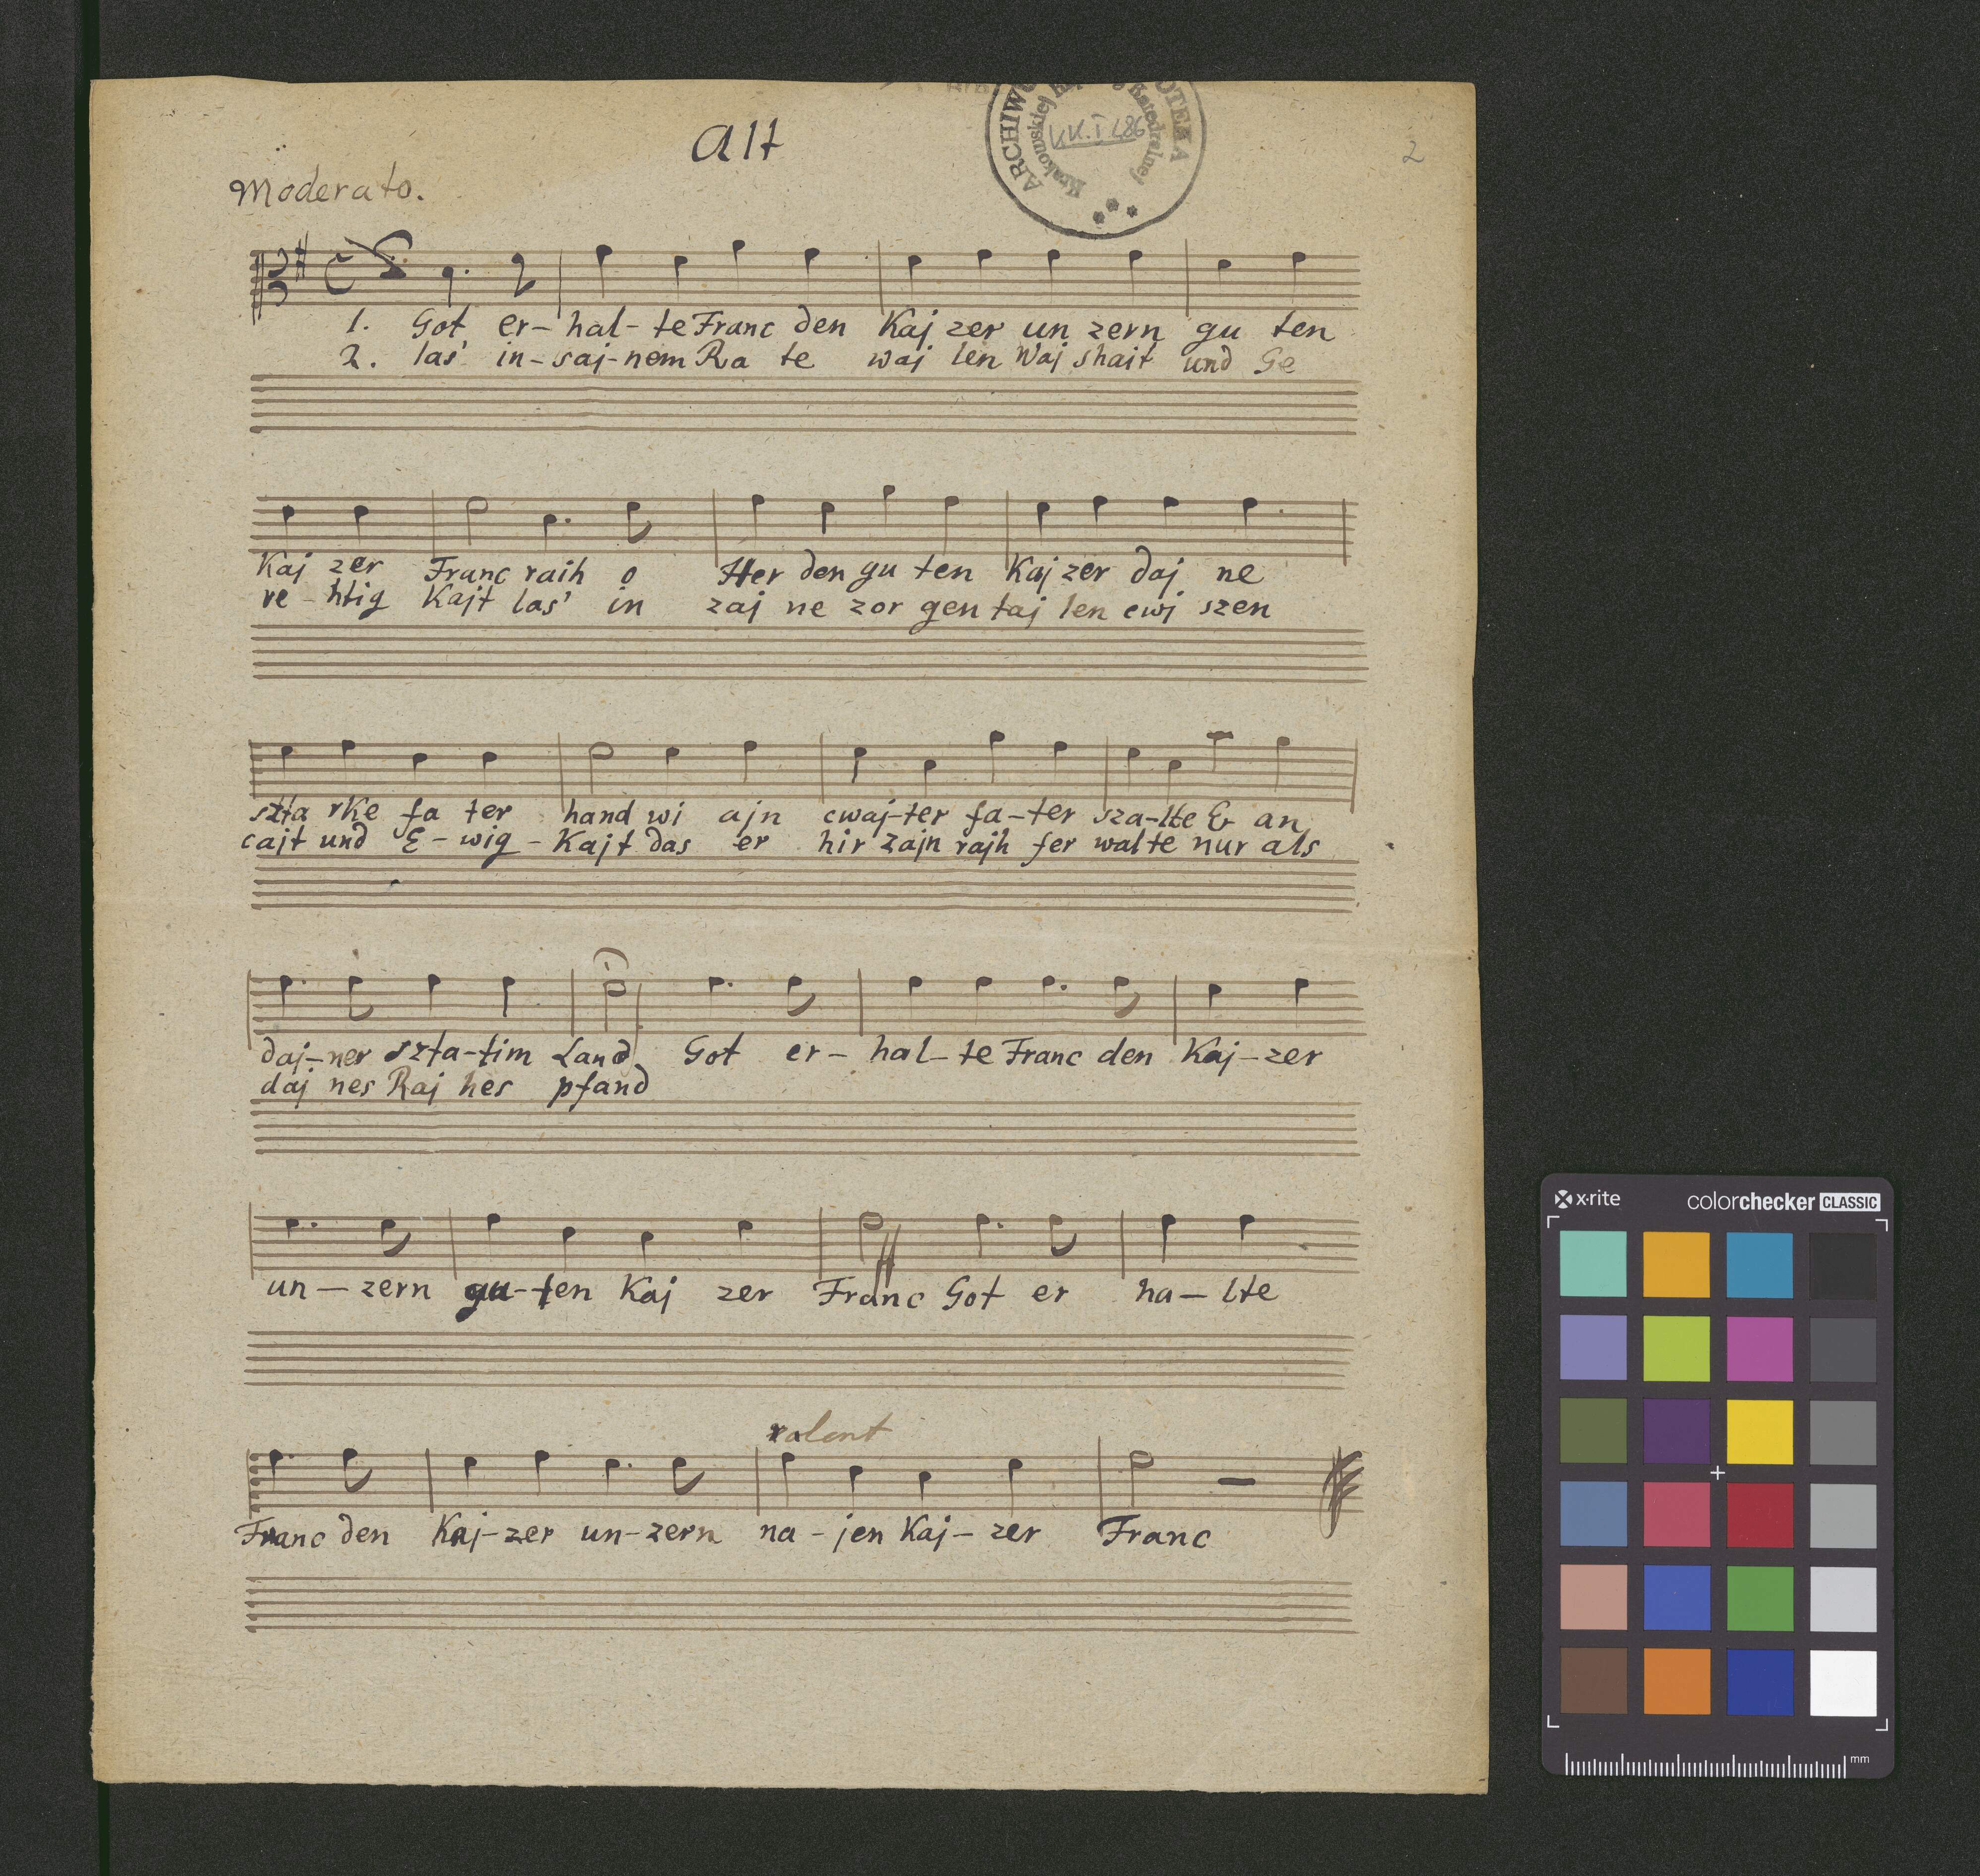 Alt
ARCHIWUM
Krakowskiej
Katedralnej
KK.I.486
2
Moderato.
1. Got er-hal-te Franc den Kaj zer un zern gu ten
2. las' in-saj-nem Ra te waj len Waj shait und Ge
Kaj zer Franc raih o Her den gu ten Kaj zer daj ne
re-htig Kajt las' in zaj ne zor gen taj len cwi szen
szta rke fa ter hand wi ajn cwaj-ter fa-ter sza-lte E an
cajt und E-wig-Kajt das er hir zajn rajh fer walte nur als
daj-ner szta-tim Land Got er-hal-te Franc den Kaj-zer
daj nes Raj hes pfand
un-zern gu-ten Kaj zer Franc Got er ha-lte
ralent
Franc den Kaj-zer un-zern na-jen Kaj-zer Franc
x·rite colorchecker CLASSIC
mm